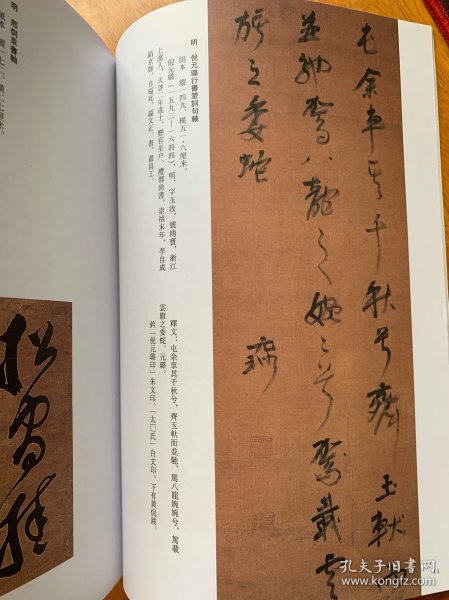 屯余車其千秋兮齊玉軑而
並馳駕八龍之婉婉兮駕載雲
旂之委蛇
元璐
明 倪元璐行書楚詞句軸
絹本 縱一四九,橫五一·六厘米。
倪元璐(一五九三—一六四四),明,字玉汝,號鴻寶,浙江
上虞人,天啓二年進士,歷官至户、禮部尚書,崇禎末年,李自成
陷京師,自縊死,謚文正。書、畫具工。
釋文:屯余車其千秋兮,齊玉軑而並馳,駕八龍婉婉兮,駕載
雲旗之委蛇。元璐。
鈐「倪元璐印」朱文印、「太囗氏」白文印。下有黄
明 邢侗草書軸
孔夫子旧书网
www.kongfz.com